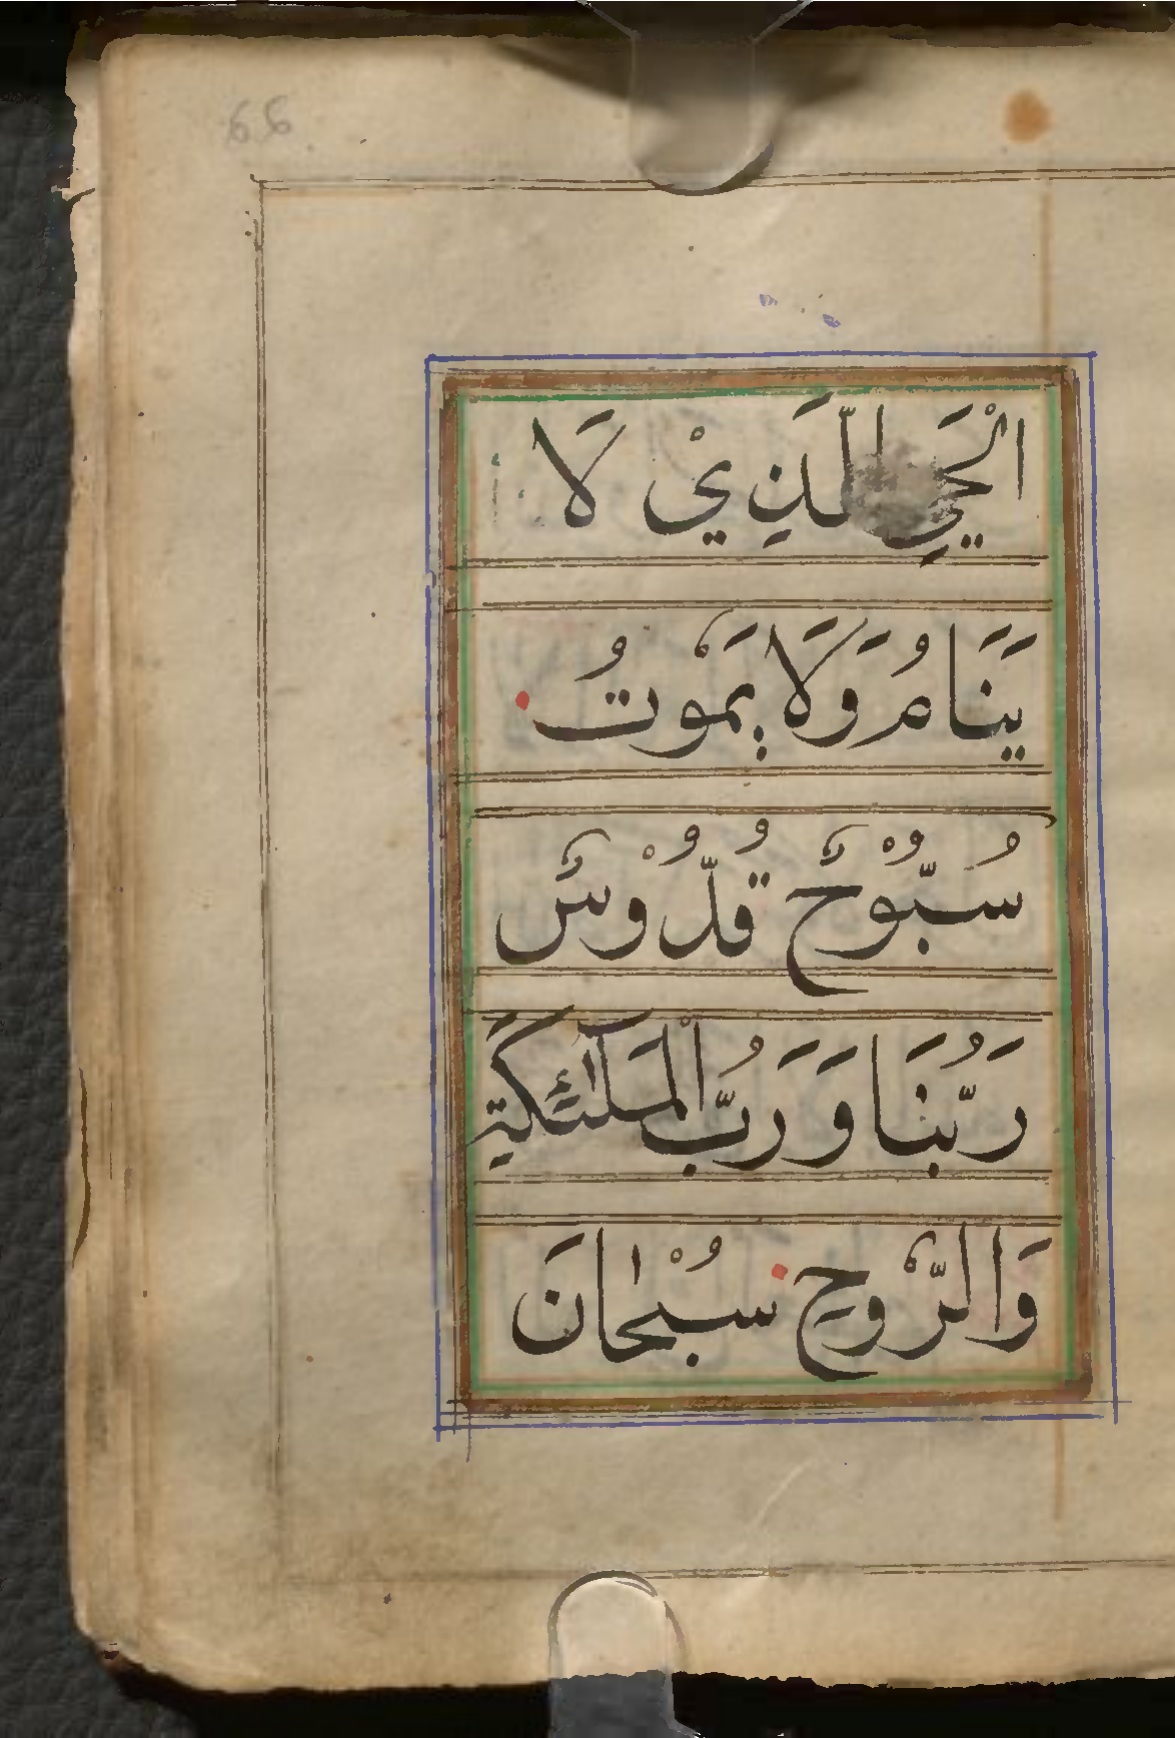 66
الْحَيِّ الَّذِيْ لَا
يَنَامُ وَلَا يَمُوتُ
سُبُّوْحٌ قُدُّوْسٌ
رَبُّنَا وَرَبُّ الْمَلٰٓئِكَةِ
وَالرُّوحِ سُبْحٰانَ